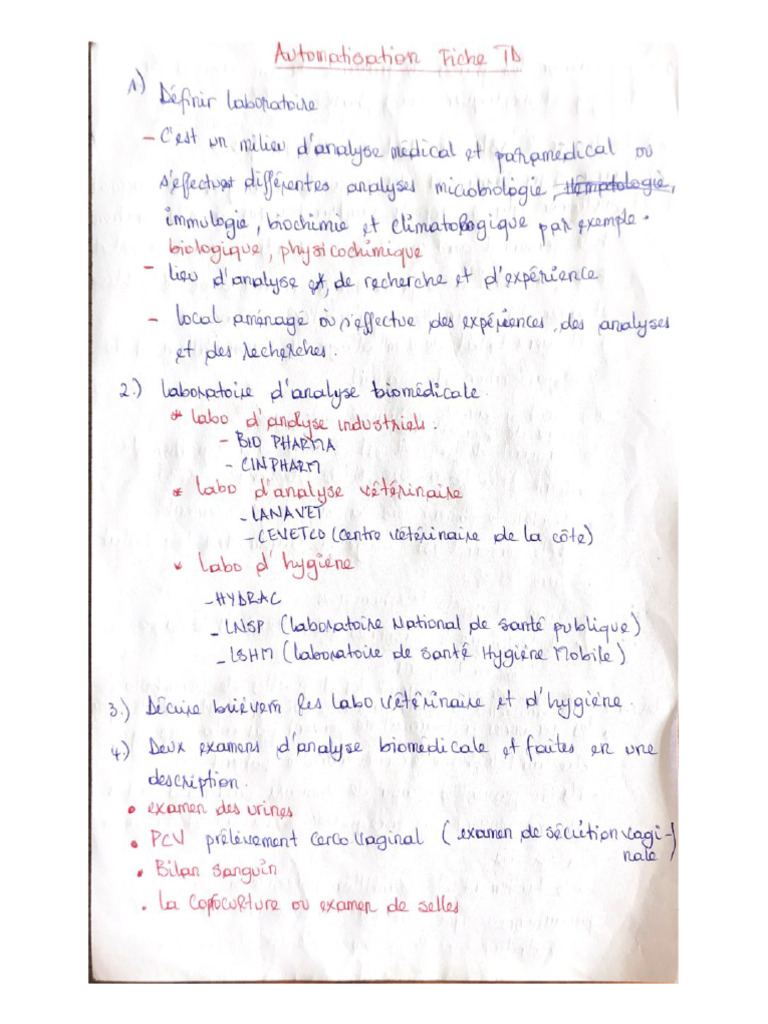 Automatisation Fiche TD
1) Définir laboratoire
- C'est un milieu d'analyse médical et paramédical ou
s'effectue différentes analyses microbiologie, hématologie,
immulogie, biochimie et climatologique par exemple.
biologique, physicochimique
- lieu d'analyse et, de recherche et d'expérience
- local aménagé où s'effectue des expériences, des analyses
et des recherches.
2.) laboratoire d'analyse biomédicale.
* labo d'analyse industriels :
- BIO PHARMA
- CINPHARM
* labo d'analyse vétérinaire
- LANAVET
- CEVETCO (Centre vétérinaire de la côte)
* labo d'hygiène
- HYDRAC
- LNSP (laboratoire National de Santé publique)
- LSHM (laboratoire de Santé Hygiène Mobile)
3.) Décrire brièvem les labo vétérinaire et d'hygiène.
4.) Deux examens d'analyse biomédicale et faites en une
description.
• examen des urines
• PCV prélèvement cerco vaginal (examen de sécrétion vagi-
nale)
• Bilan sanguin
• la Coproculture ou examen de selles